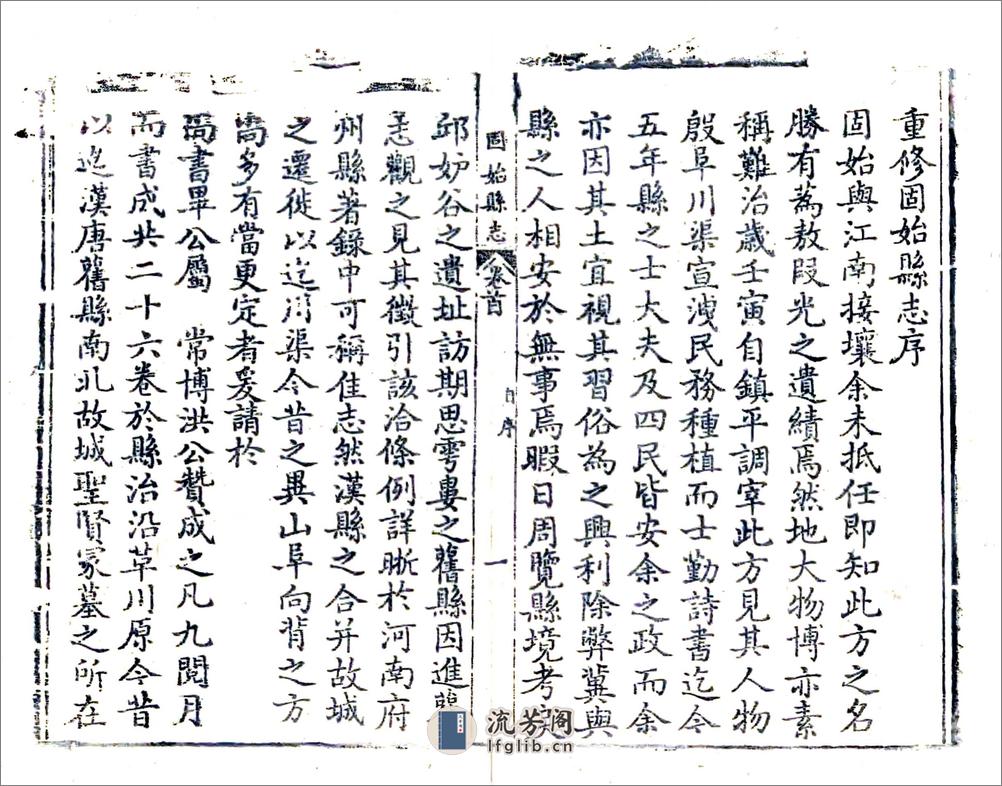 重修固始縣志序
固始與江南接壤余未抵任即知此方之名
勝有為敖叚光之遺績焉然地大物博亦素
稱難治歲壬寅自鎮平調宰此方見其人物
殷阜川渠宣洩民務種植而士勤詩書迄今
五年縣之士大夫及四民皆安余之政而余
亦因其土宜視其習俗為之興利除弊冀與
縣之人相安於無事焉暇日周覽縣境考寖
固始縣志
卷首
自序
一
邱妢谷之遺址訪期思雩婁之舊縣因進舊
志觀之見其徵引該洽條例詳晰於河南府
州縣著錄中可稱佳志然漢縣之合并故城
之遷徙以迄川渠今昔之異山阜向背之方
尚多有當更定者爰請於
尚書畢公屬 常博洪公贊成之凡九閱月
而書成共二十六卷於縣治沿革川原今昔
以迄漢唐舊縣南北故城聖賢冢墓之所在
流芳閣
lfglib.cn